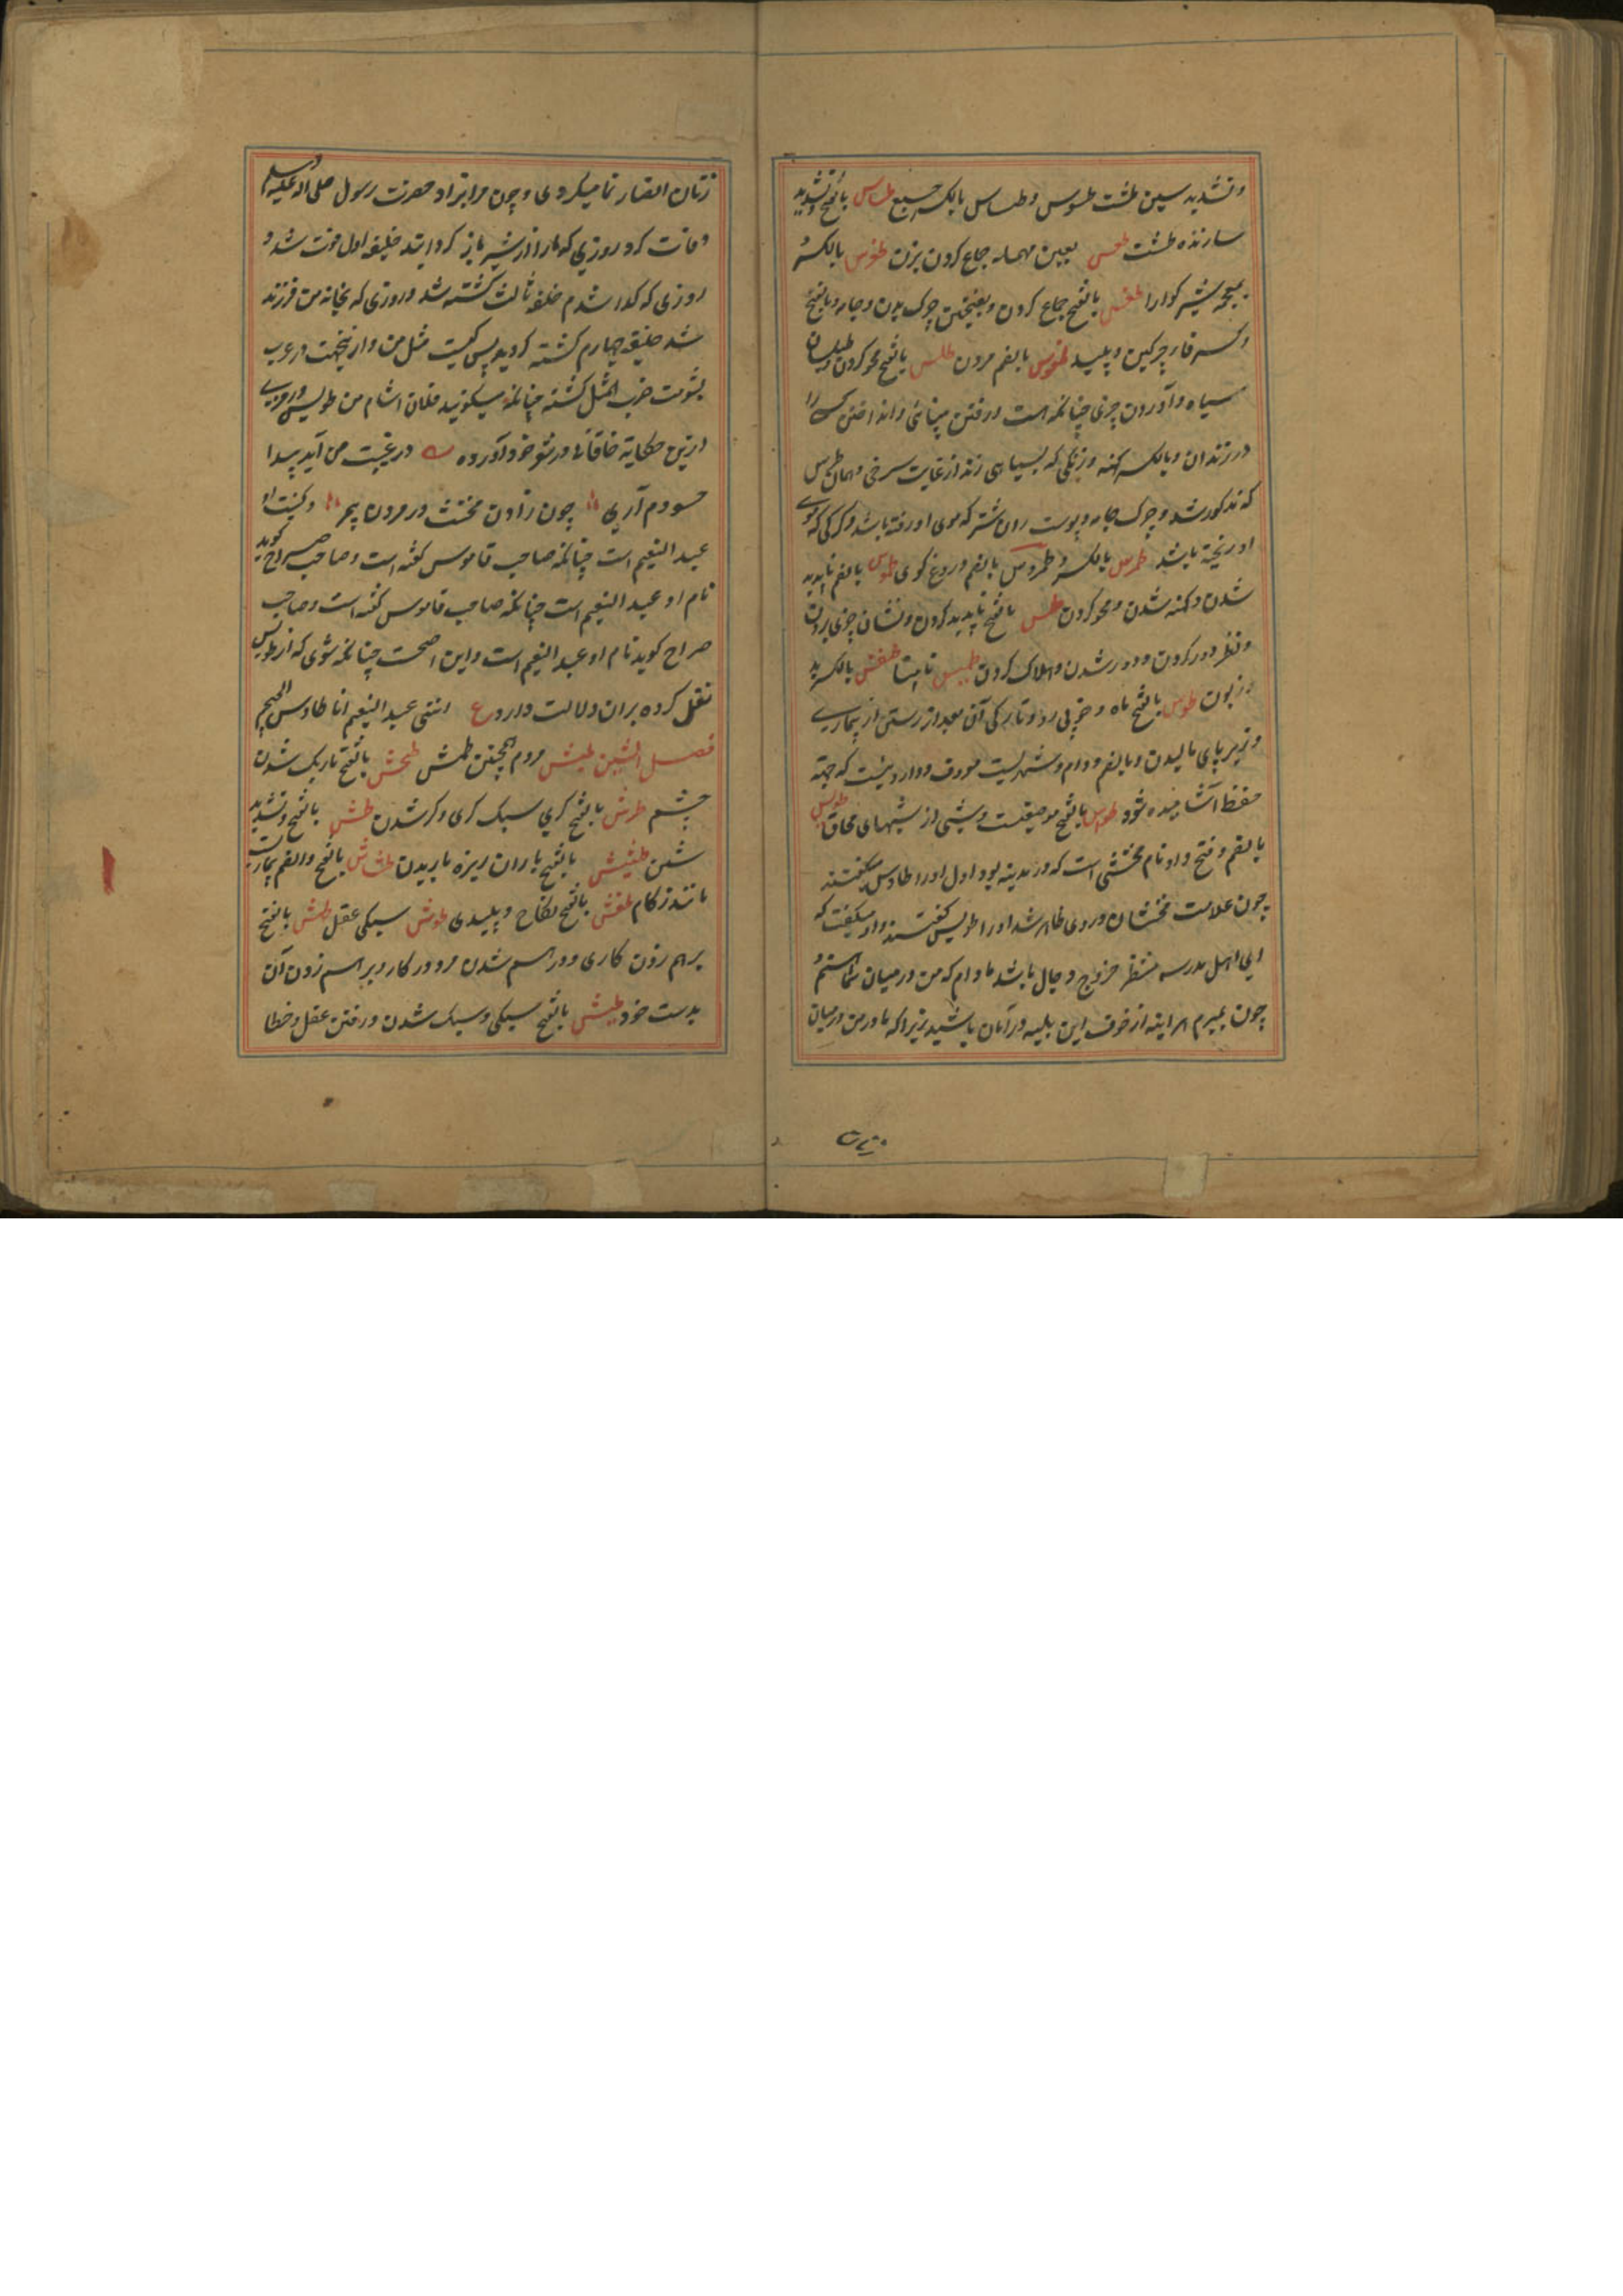 وتشدید سین طشت طسوس وطساس بالکسر جمع طساس بالفتح وتشدید
سازنده طشت طعس بعین مهمله جماع کردن بزن طغوس بالکسر
بمعجمه شیر کوارا طفس بالفتح جماع کردن وبفتحتین چرک بدن وجامه وبالفتح
وکسر فا چرکین وپلید طفوس بالضم مردن طلس بالفتح محو کردن وطیلسان
سیاه وآوردن چیزی چنانکه است ورفتن بینائی وانداختن کسی را
در زندان وبالکسر کهنه ورنکی که بسیاهی زند از غایت سرخی وهمان طرس
که مذکور شد وچرک جامه وپوست ران شتر که موی او رفته باشد وکرکی که موی
او ریخته باشد طمرس بالکسر وطمروس بالضم دروغ کوی طموس بالضم ناپدید
شدن وکهنه شدن ومحو کردن طمس بالفتح ناپدید کردن ونشان چیزی بردن
ونظر دور کردن ودور شدن وهلاک کردن طمیس نابینا طنفس بالکسر بد
وزبون طوس بالفتح ماه وخوبی رو وتازکی آن بعد از رستن از بیماری
وزیر پای مالیدن وبالضم ودام وشهریست معروف وداروئیست که جهته
حفظ آشامیده شود طواس بالفتح موضعیست وشبی از شبهای محاق طویس
بالضم وفتح واو نام مخنثی است که در مدینه بود اول او را طاوس میکفتند
چون علامت مخنثان در وی ظاهر شد او را طویس کفتند واو میکفت که
ای اهل مدرسه منتظر خروج دجال باشد مادام که من در میان شما هستم و
چون بمیرم هر اینه از خوف این بلیه در آمان باشید زیرا که مادر من در میان
زنان انصار نما میکردی وچون مرا بزاد حضرت رسول صلی الله علیه وسلم
وفات کرد روزی که مرا از شیر باز کردانید خلیفه اول فوت شد و
روزی که کدا شدم خلفه ثالث کشته شد وروزی که بخانه من فرزند
شد خلیفه چهارم کشته کردید پس کیست مثل من واز ینجهت در عرب
بشومت ضرب المثل کشته چنانکه میکویند فلان اشام من طویس ومروی
ازین حکایة خاقانی در شعر خود آورده در غیبت من آید پیدا
حسودم آری چون زادن مخنث در مردن پیمبر وکنیت او
عبد النعیم است چنانکه صاحب قاموس کفته است وصاحب صراح کوید
نام او عبد النعیم است چنانکه صاحب قاموس کفته است وصاحب
صراح کوید نام او عبد النعیم است واین اصحت چنانکه شعری که از طویس
نقل کرده بران دلالت دارد ع اننی عبد النعیم انا طاوس الجحیم
فصل الشین طبش مردم همچنین طمش طخش بالفتح تاریک شدن
چشم طرش بالفتح کری سبک کری وکر شدن طش بالفتح وتشدید
شین طشیش بالفتح باران ریزه باریدن طشاش بالفتح والضم بیماریست
مانند زکام طفش بالفتح نکاح وپلیدی طوش سبکی عقل طهش بالفتح
برهم زدن کاری ودرهم شدن مرد در کار وبرهم زدن آن
بدست خود طیش بالفتح سبکی وسبک شدن ورفتن عقل وخطا